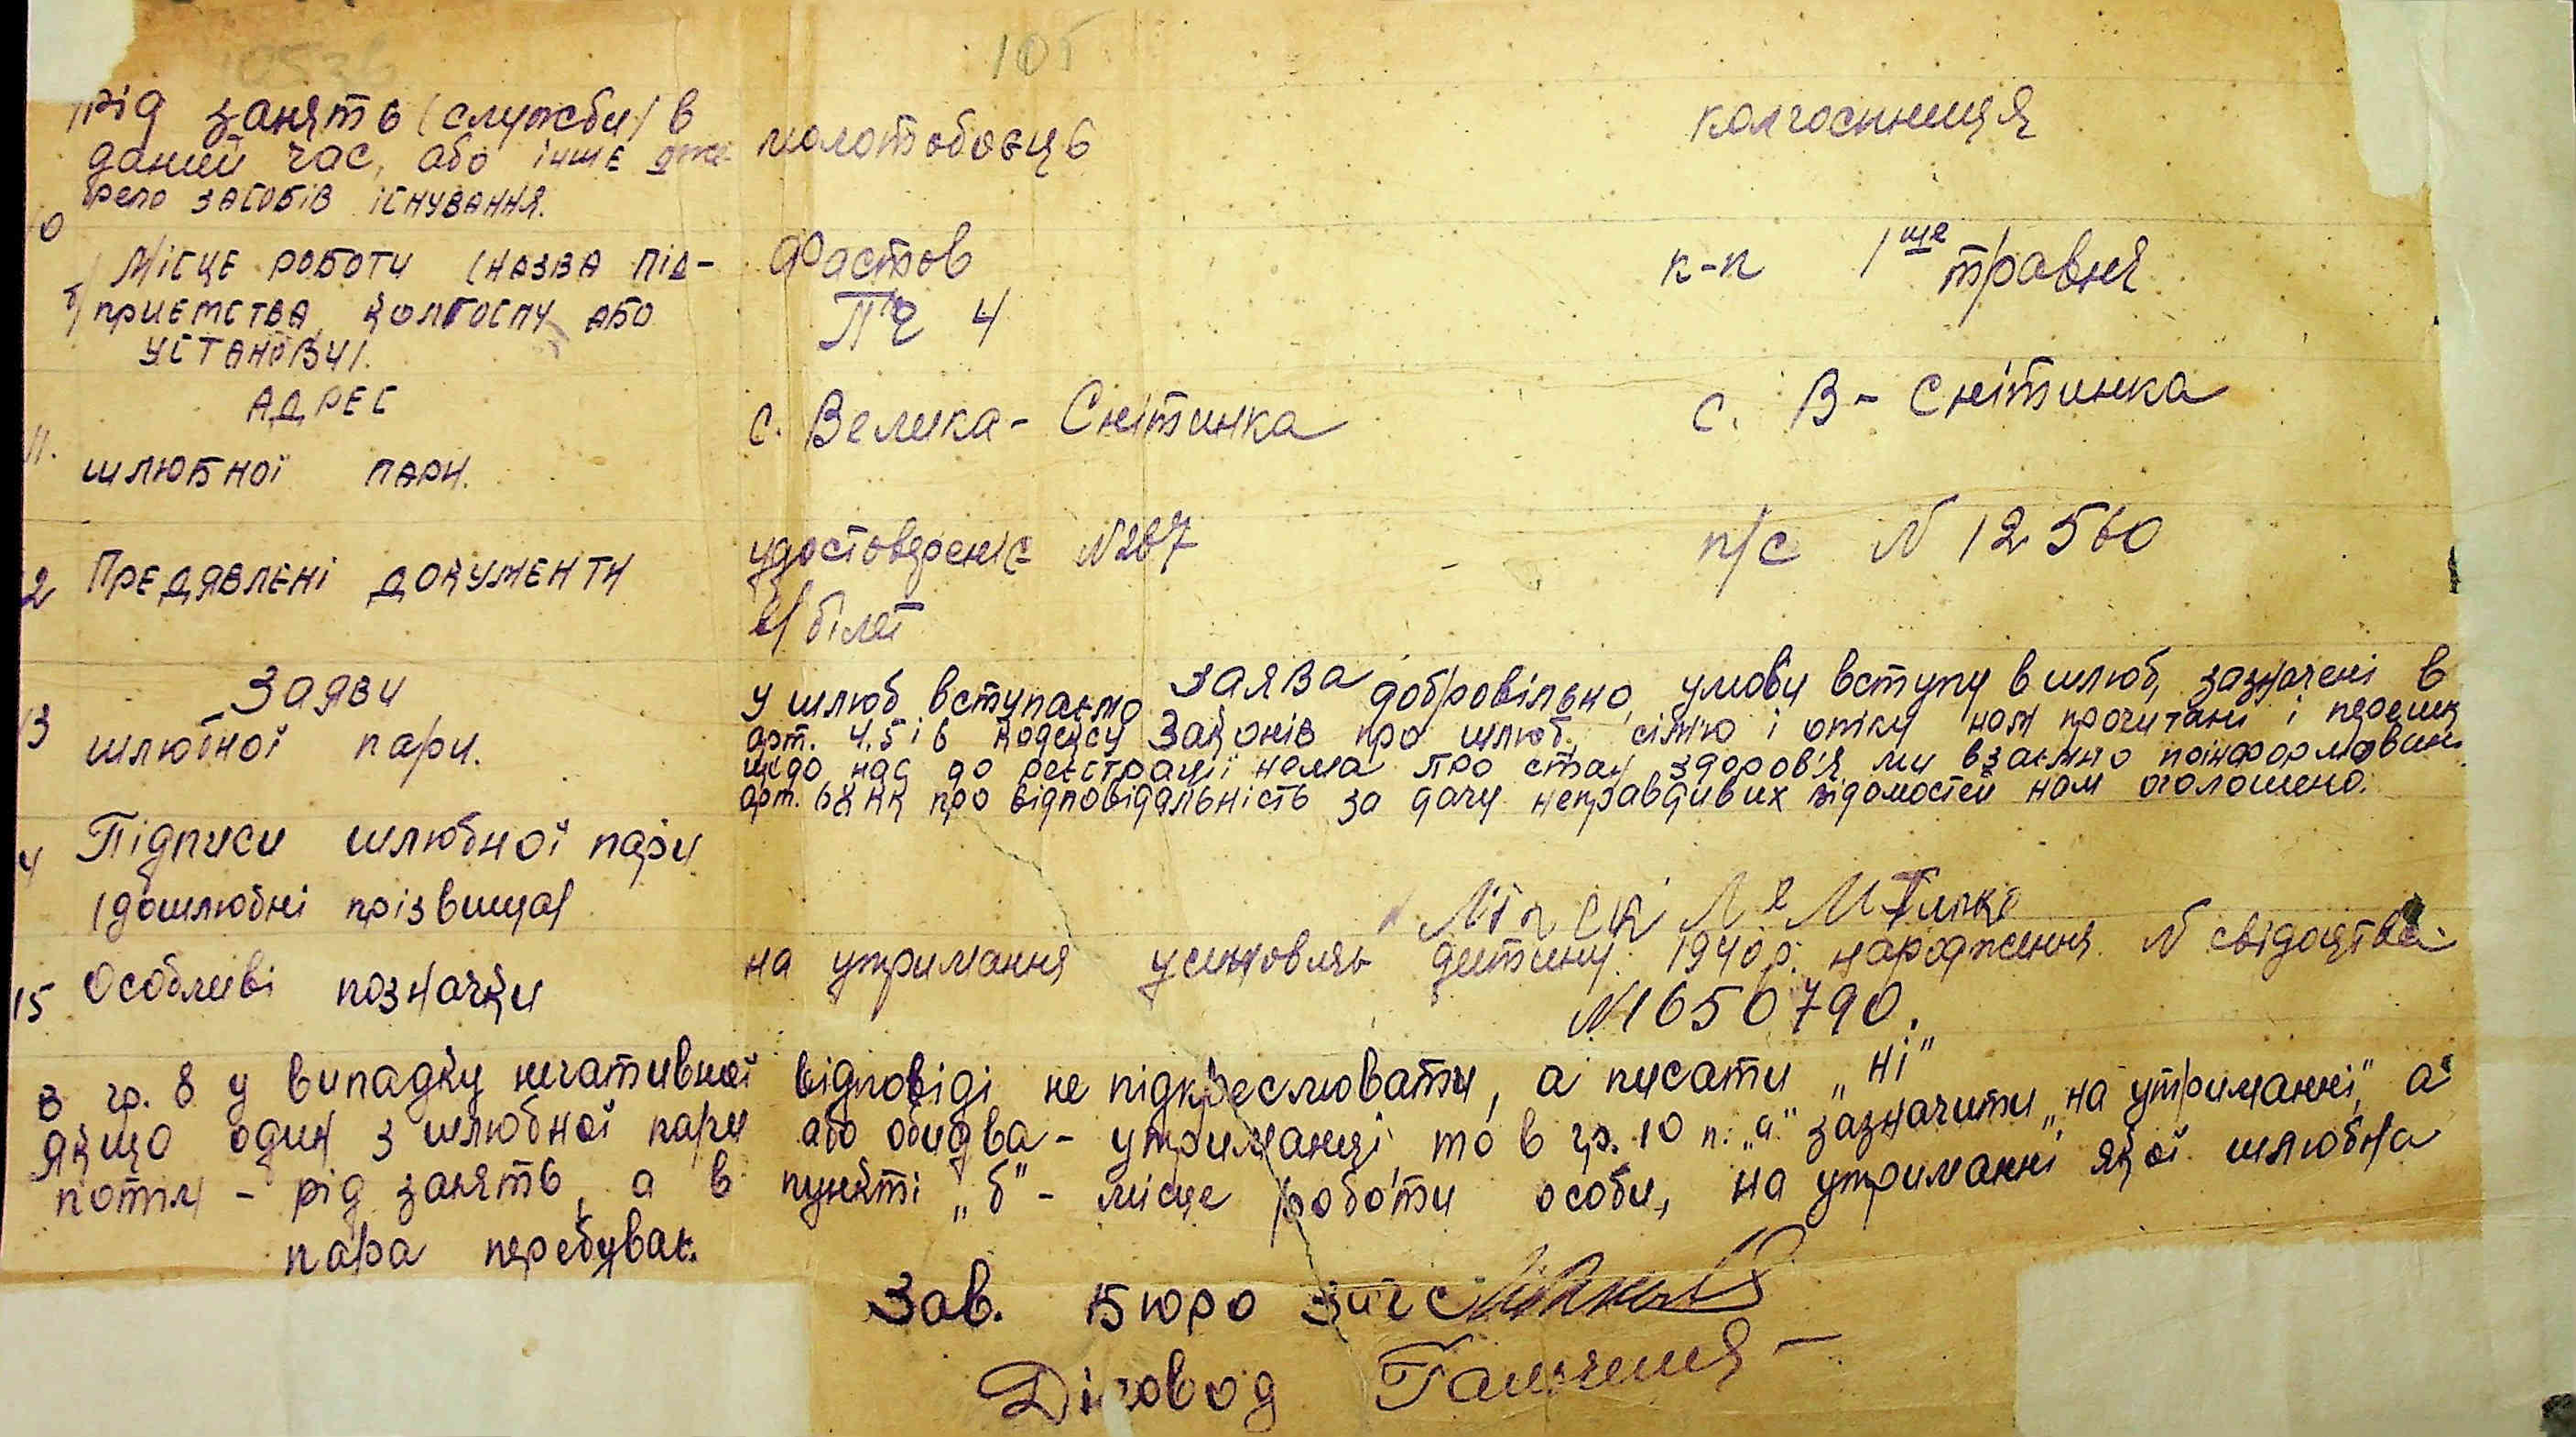 105
рід занять (служби) в
даний час, або інше дже-
рело засобів існування.
молотобоєць
колгоспниця
10
б/ Місце роботи (назва під-
приємства, колгоспу або
установи).
Фастов
ПЧ 4
к-п 1ше травня
11. Адрес
шлюбної пари.
с. Велика-Снітинка
с. В-Снітинка
2 Предявлені документи
удостовереніє N 267
в/білет
п/с N 12560
13 Заяви
шлюбної пари.
заява
У шлюб вступаємо добровільно, умови вступу в шлюб, зазначені в
арт. 4.5 і 6 Кодексу Законів про шлюб, сім'ю і опіку нам прочитані і перешк
щодо нас до реєстрації нема про стан здоров'я ми взаємно поінформовані
арт. КК про відповідальність за дачу неправдивих відомостей нам оголошено.
4 Підписи шлюбної пари
(дошлюбні прізвища)
15 Особливі позначки
на утримання дитину 1940 р. народження. N свідоцтва
N 1650790.
в гр. 8 у випадку негативної відповіді не підкреслювати, а писати „ні"
якщо один з шлюбної пари або обидва - утриманці, то в гр. 10 п. „а" зазначити „на утриманні", а
потім - рід занять, а в пункті „б" - місце роботи особи, на утриманні якої шлюбна
пара перебуває.
Зав. Бюро загс
Діловод